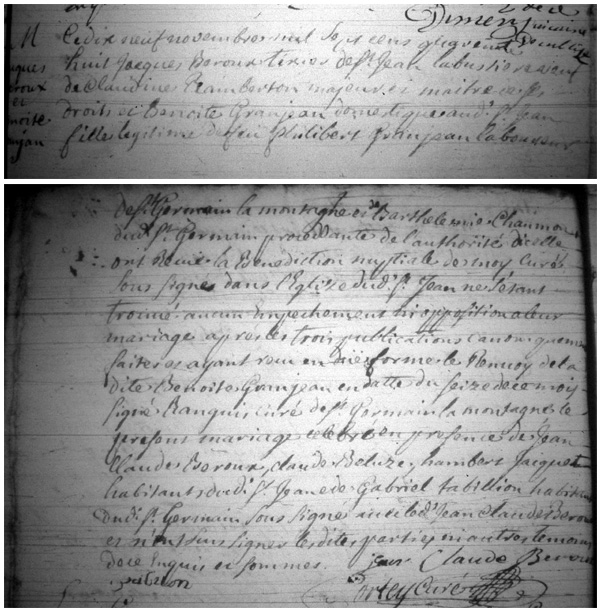 M
Le dix neuf novembre mil sept cens quarente
huit Jacques Beroux tixier de st. Jean la bussiere veuf
de Claudine Chamberton majeur et maitre de ses
droits et Benoite Granjean domestique aud. st. Jean
fille legitime de feu philibert Granjean laboureur
de st. Germain la montagne et de Barthelemie Chaumon
dud. st. Germain procedante de l'authorité d'icelle
ont Receu la Benediction nuptiale de moy curé
sous signé dans l'Eglize dud. st. Jean ne s'étant
trouvé aucun empechement ni opposition a leur
mariage apres les trois publications canoniquement
faites et ayant receu en due forme le Renvoy de la
dite Benoite Granjean en datte du seize de ce mois
signé curé de st. Germain la montagne le
present mariage celebré en presence de Jean
Claude Beroux, claude Beluze, hambert Jacquet
habitants dud. st. Jean et de Gabriel tabillion habitant
dud. st. Germain sous signé avec led. Jean Claude Beroux
et non sus signés les dites parties ni autres temoins
de ce Enquis et sommés. Jean Claude Beroux
curé